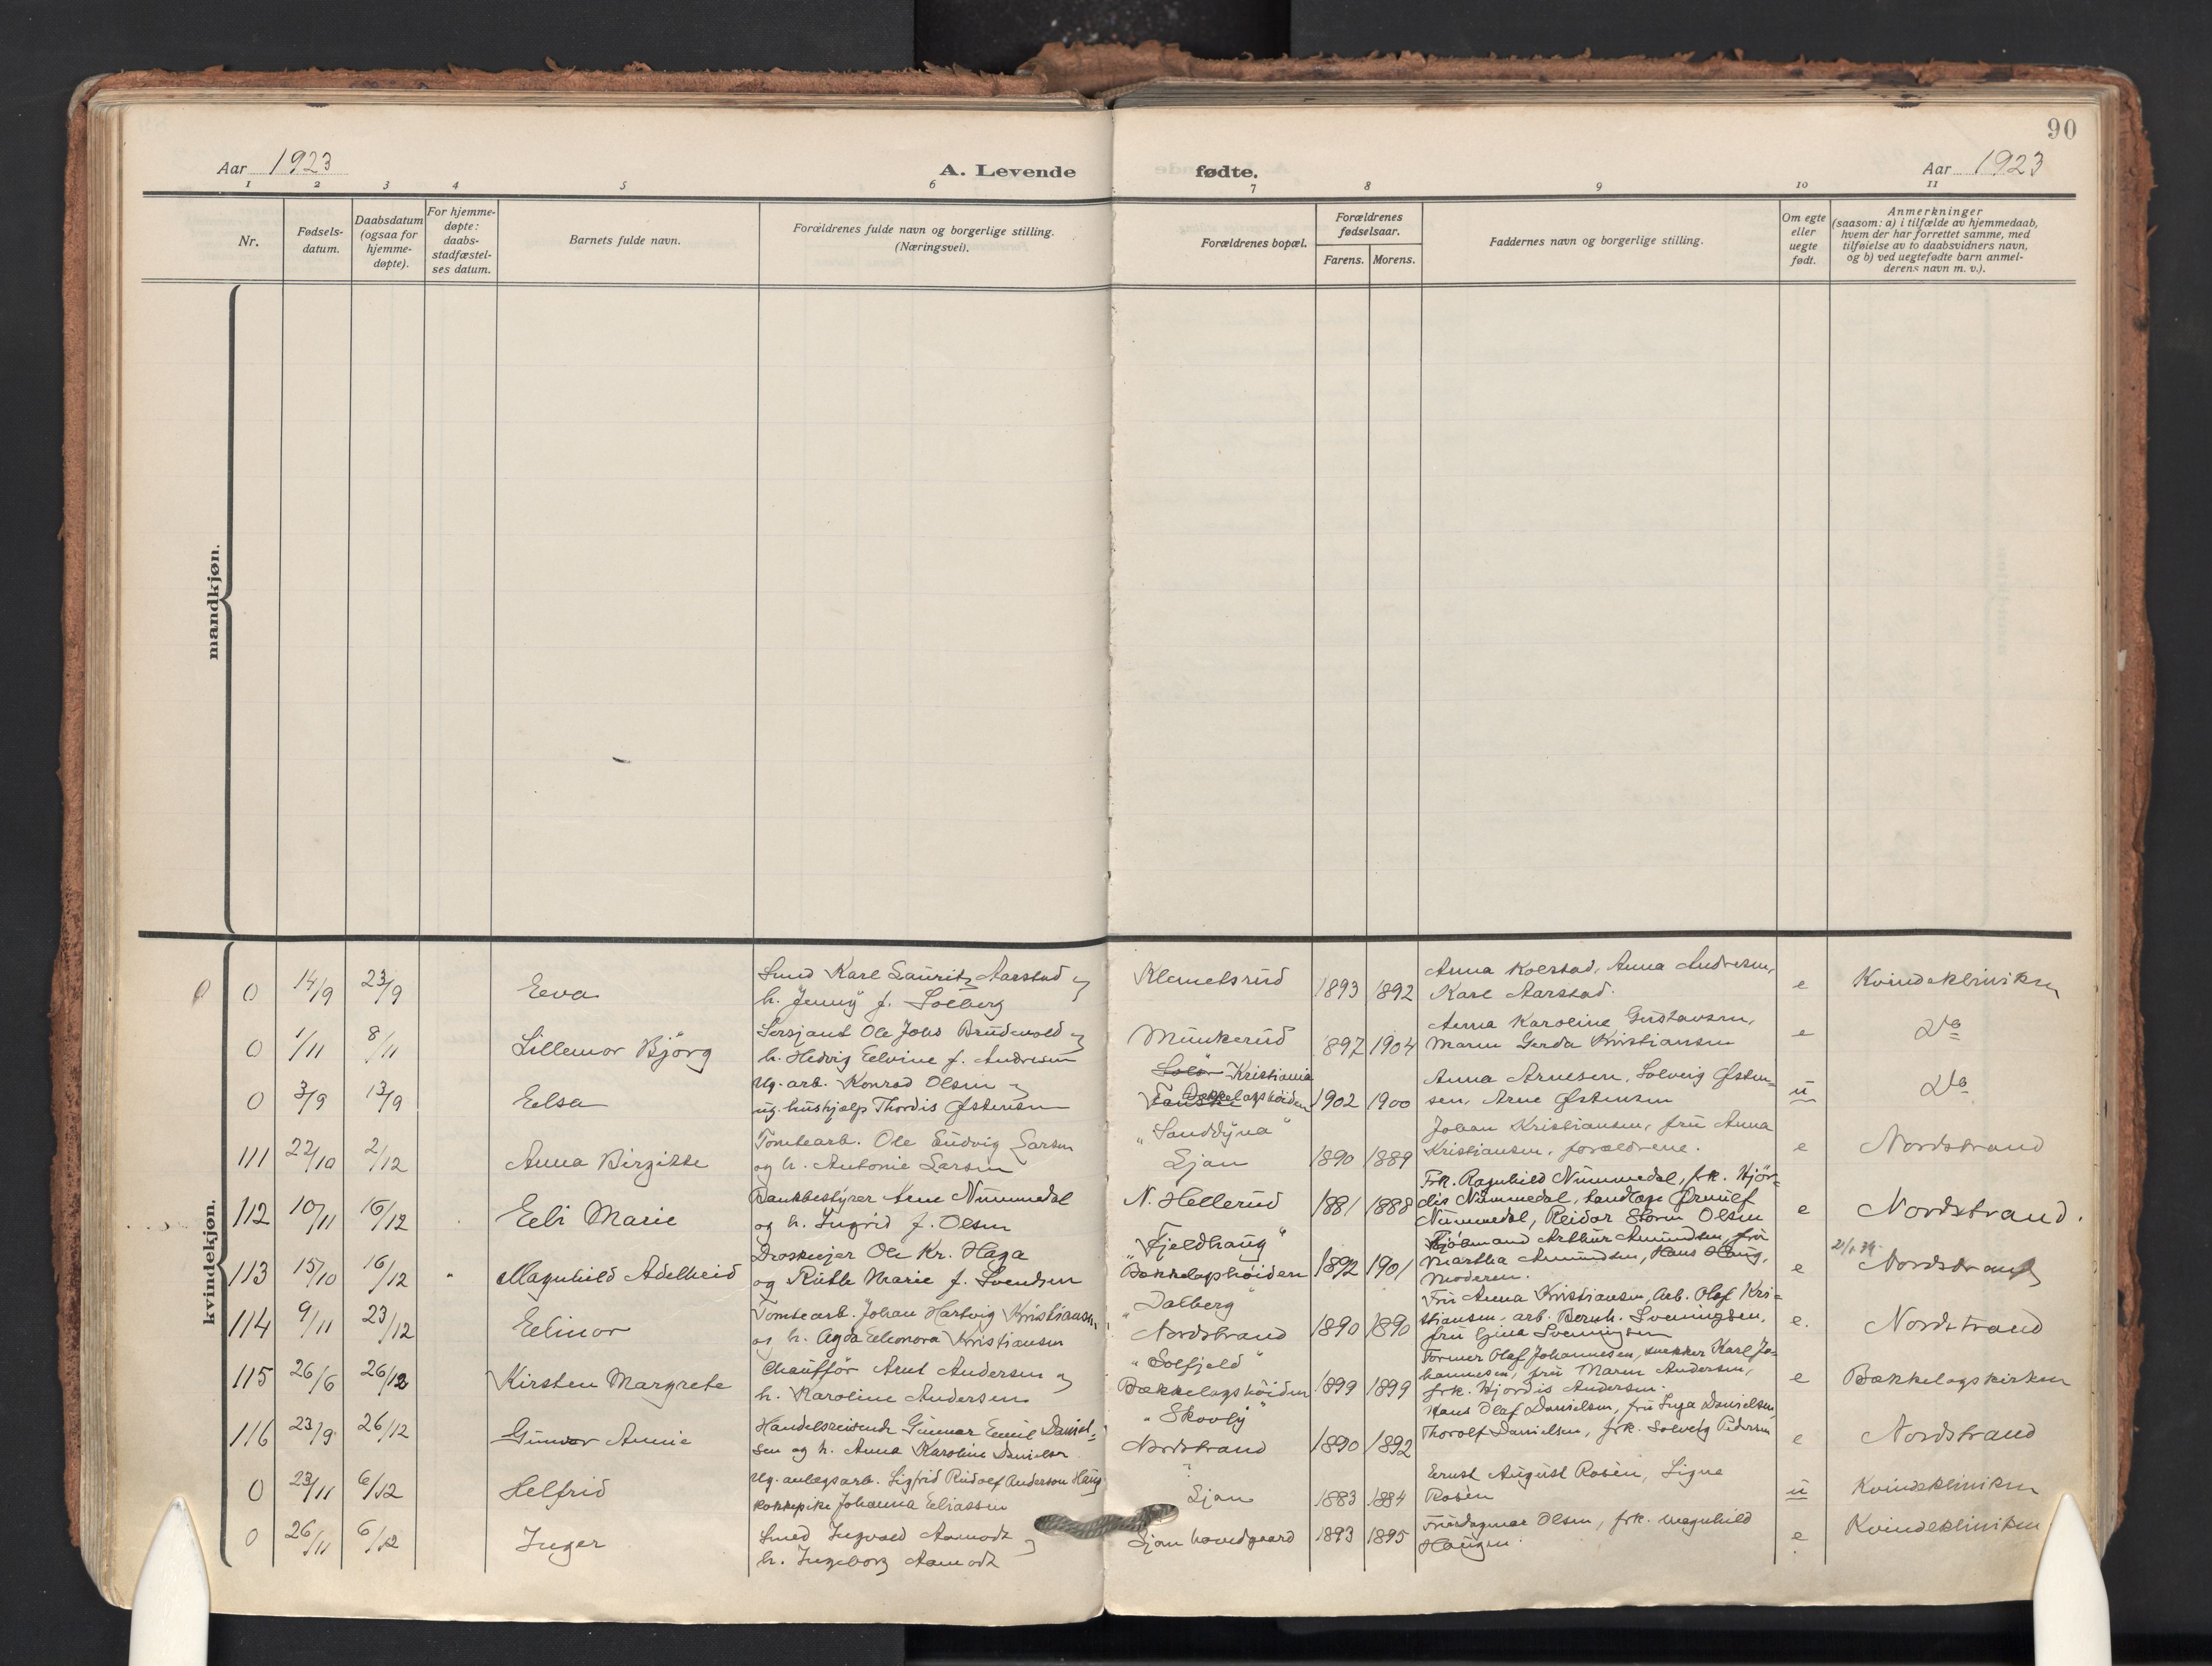 90
Aar 1923
A. Levende
fødte.
Aar 1923
1 2 3 4 5 6 7 8 9 10 11
Nr.
Fødsels-
datum.
Daabsdatum
(ogsaa for
hjemme-
døpte).
For hjemme-
døpte:
daabs-
stadfæstel-
ses datum.
Barnets fulde navn.
Forældrenes fulde navn og borgerlige stilling.
(Næringsvei).
Forældrenes bopæl.
Forældrenes
fødselsaar.
Farens. Morens.
Faddernes navn og borgerlige stilling.
Om egte
eller
uegte
født.
Anmerkninger
(saasom: a) i tilfælde av hjemmedaab,
hvem der har forrettet samme, med
tilføielse av to daabsvidners navn,
og b) ved uegtefødte barn anmel-
derens navn m. v.).
mandkjøn.
kvindekjøn.
0 14/9 23/9 Eva
Smed Karl Lauritz Aarstad og
h. Jenny f. Solberg
Klemetsrud
1893 1892
Anna Kolstad, Anna Andresen,
Karl Aarstad.
e
Kvindekliniken
0 1/11 8/11 Lillemor Björg
Sersjant Ole Johs Brudevold og
h. Hedvig Elvine f. Andresen
Munkerud
1897 1904
Anna Karoline Gustavsen,
Maren Gerda Kristiansen
e
Do
0 3/9 13/9 Elsa
Ug. arb. Konrad Olsen og
ug. hushjælp Thordis Østensen
Kristiania
Bækkelagshöiden
1902 1900
Anna Arnesen, Solveig Østen-
sen, Arne Østensen
u
Do
111 22/10 2/12 Anna Birgitte
Tomtearb. Ole Ludvig Larsen
og h. Antonie Larsen
"Sanddyna"
Ljan
1890 1889
Johan Kristiansen, fru Anna
Kristiansen, forældrene.
e
Nordstrand
112 10/11 16/12 Eli Marie
Bankbestyrer Arne Nummedal
og h. Ingrid f. Olsen
N. Hellerud
1881 1888
Frk. Ragnhild Nummedal, frk. Hjör-
dis Nummedal, Ørnulf
Nummedal, Reidar Storm Olsen
e
Nordstrand.
113 15/10 16/12 Magnhild Adelheid
Droskeejer Ole Kr. Haga
og Ruth Marie f. Svendsen
"Fjeldhaug"
Bækkelagshöiden
1892 1901
Kjöbmand Arthur Amundsen, fru
Martha Amundsen, Hans Haug,
Moderen.
e
Nordstrand
114 9/11 23/12 Elinor
Tomtearb. Johan Hartvig Kristiansen
og h. Agda Eleonora Kristiansen
"Dalberg"
Nordstrand
1890 1890
Fru Anna Kristiansen, Arb. Olaf Kri-
stiansen, arb. Bernh. Svenningsen,
fru Gina Svenningsen
e.
Nordstrand
115 26/6 26/12 Kirsten Margrete
Chauffør Arnt Andersen og
h. Karoline Andersen
"Solfjeld"
Bækkelagshöiden
1899 1899
Former Olaf Johannesen, snekker Karl Jo-
hannesen, fru Maren Andersen,
frk. Hjordis Andersen.
e
Bækkelagskirken
116 23/9 26/12 Gunvor Annie
Handelsreisende Gunnar Emil Daniel-
sen og h. Anna Karoline Danielsen
"Skovly"
Nordstrand
1890 1892
Hans Olaf Danielsen, fru Inga Danielsen,
Thorolf Danielsen, frk. Solveig Pedersen
e
Nordstrand
0 23/11 6/12 Helfrid
Ug. anlægsarb. Sigfrid Rudolf Anderson Haug
kokkepike Johanna Eliassen
Ljan
1883 1884
Ernst August Rosèn, Signe
Rosèn
u
Kvindekliniken
0 26/11 6/12 Inger
Smed Ingvald Aamodt og
h. Ingeborg Aamodt
Ljan hovedgaard
1893 1895
Fru Dagmar Olsen, frk. Magnhild
Haugen.
e
Kvindekliniken